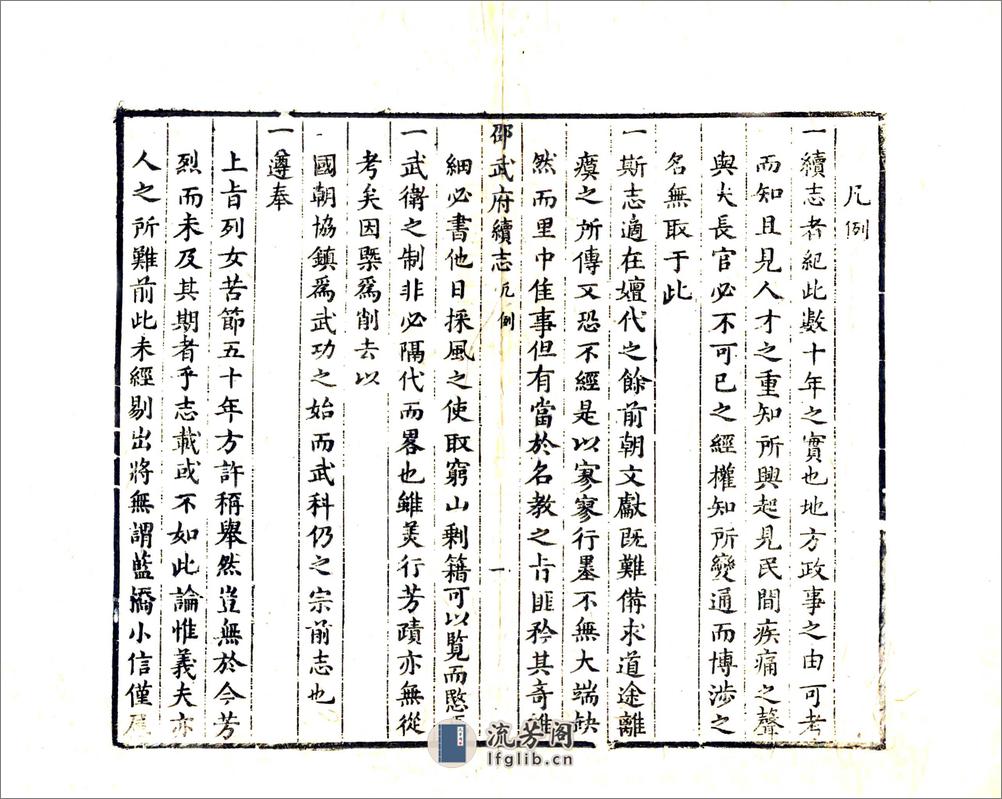 凡例
一續志者紀此數十年之實也地方政事之由可考
而知且見人才之重知所興起見民間疾痛之聲
與夫長官必不可已之經權知所變通而博涉之
名無取于此
一斯志適在嬗代之餘前朝文獻既難備求道途離
瘼之所傳又恐不經是以寥寥行墨不無大端缺
然而里中隹事但有當於名教之片匪矜其奇雖
邵武府續志 凡例 一
細必書他日採風之使取窮山剩籍可以覧而愍
一武衛之制非必隔代而畧也雖美行芳蹟亦無從
考矣因槩爲削去以
國朝協鎮爲武功之始而武科仍之宗前志也
一遵奉
上㫖列女苦節五十年方許稱舉然豈無於今芳
烈而未及其期者乎志載或不如此論惟義夫亦
人之所難前此未經剔出將無謂藍橋小信僅
流芳阁
lfglib.cn